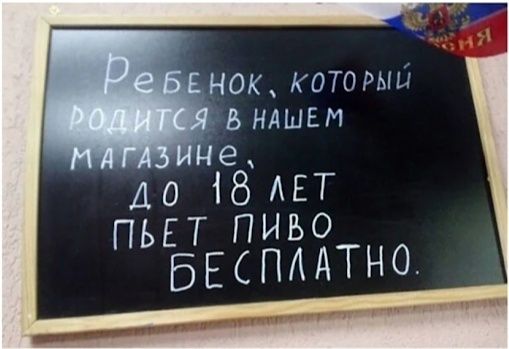 Ребенок, который
родится в нашем
магазине,
до 18 лет
пьет пиво
бесплатно.